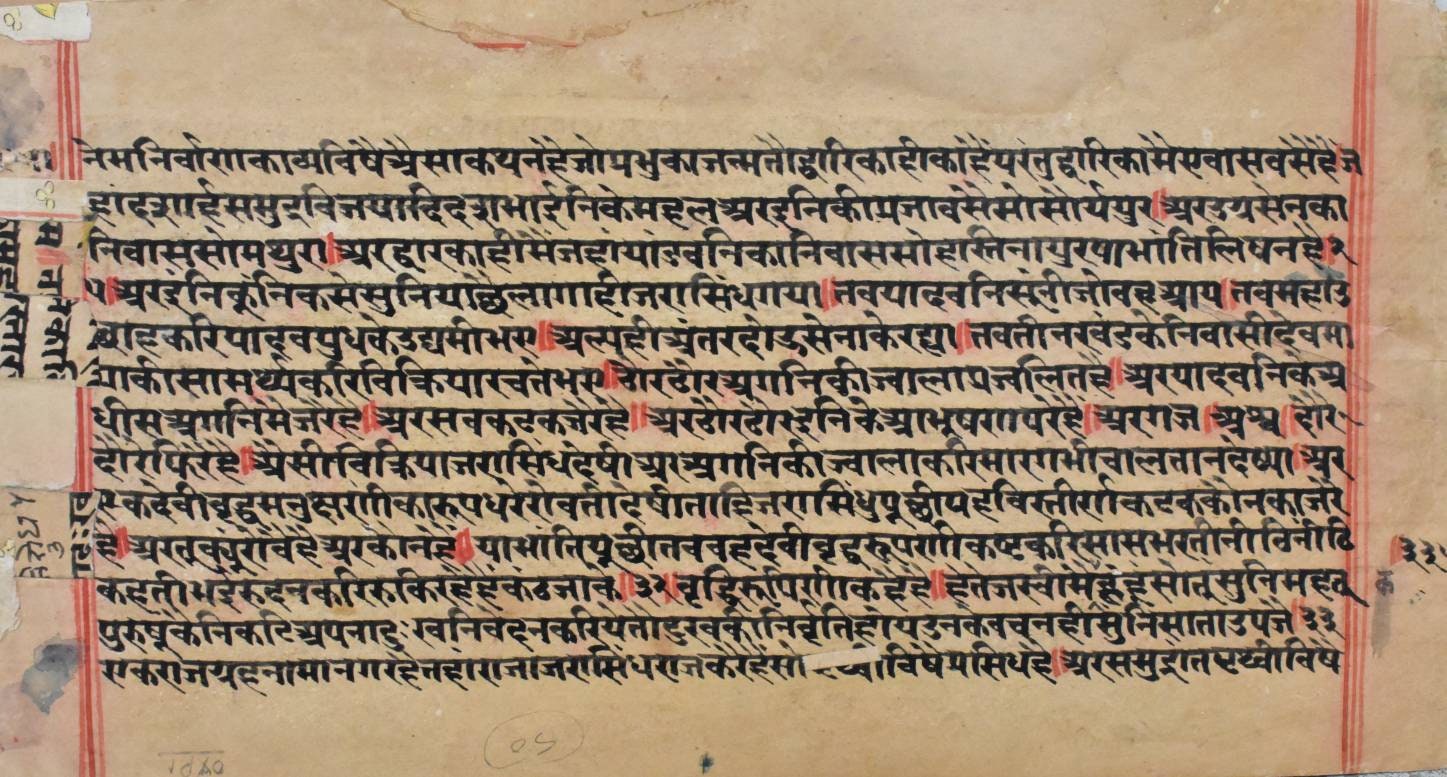 नेमनिर्वाणकाव्यविषैअैसाकथनहैजोप्रभुकाजन्मतौद्वारिकाहीकाहैपरंतुद्वारिकामैएवासवसैहैज
हांदशार्हसमुद्रविजयादिदशभाईनिकेमहलअरइनिकीप्रजावसैसोसौर्यपुर।अरउग्रसेनका
निवाससोमथुरा।अरद्वारकाहीमैंजहांपांडवनिकानिवाससोहस्तिनापुरयाभांतिलिषनहै२
अरइनिकूंनिकसेसुनिपाछैलागाहीजरासिंधगया।तवयादवनिसंतीजीवहूआय।तवमहाउ
त्साहकरियादवयुधकेउद्यमीभए।अल्पहीअंतरदोऊसेनाकेरह्या।तवतीनखंडकेनिवासीदेवमा
याकीसामर्थ्यकरिविक्रियारचतेभए।ठौरठौरअगनिकीज्वालाप्रज्वलितहै।अरयादवनिकेअ
धीसअगनिमैजरेहै।अरसवकटकजरैहै।अरठौरठौरइनिकेआभूषणपरेहै।अरगज।अश्व।दौरे
दौरेफिरैहै।अैसीविक्रियाजरासिंधदेषी।अरअगनिकीज्वालाकरिमारगभीचालतानदेष्या।अर
एकदेवीवृद्धमनुक्षणीकारूपधरेरोवतीदेषीताहिजरासिंधुपूछीयहविस्तीर्णकटककौनकाजरे
है।अरतूक्यूंरोवैहैअरकौनहै।याभांतिपूछीतववहदेवीवृद्धरूपणीकष्टकरिसासभरतीनीठिनीठि
कहतीभईरुदनकरिरुकिरहैहैकंठजाके।३२।वृद्धिरूपिणीकहैहै।हेतेजस्वीमैकहूहूंसोतूसुनिमहत्
पुरुषूंकेनिकटिअपनादुःखनिवेदनकरियेतोदुखकीनिर्वृतिहोयउनकेवचनहीसुनिसाताउपजै३३
एकराजग्रहनामानगरहैतहांराजाजरासिंधराजकरैहैसो विषैप्रसिधहै।अरसमुद्रांतपृथ्वीविषै